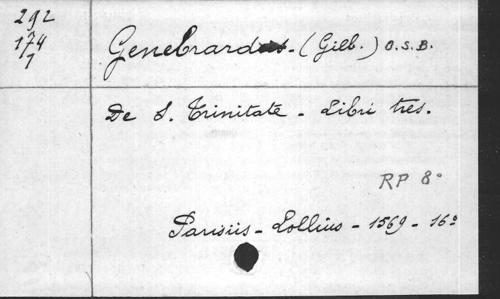 292
174
1
Genebrard. (Gilb.) O.S.B.
De S. Trinitate - Libri tres.
RP 8°
Parisiis - Lollius - 1569 - 16°